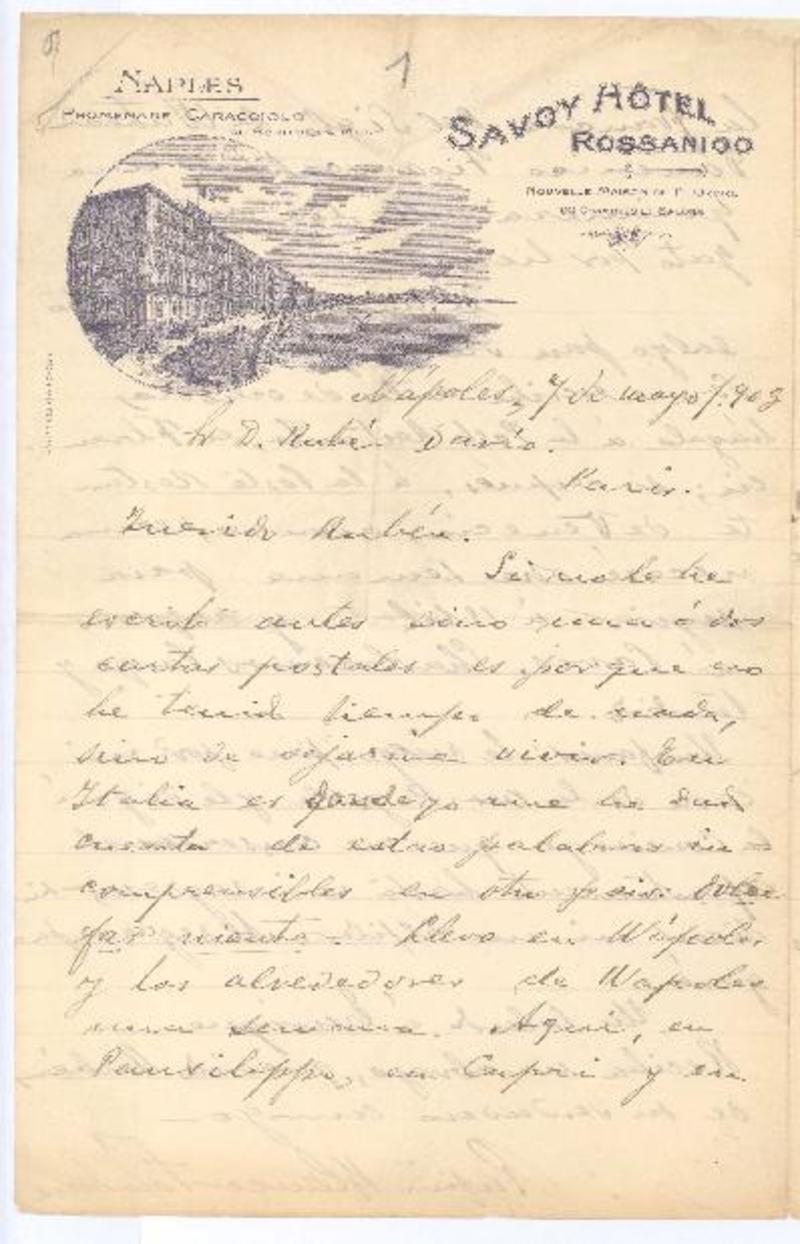 1
NAPLES
PROMENADE CARACCIOLO
SAVOY HÔTEL
ROSSANIGO
NOUVELLE MAISON DE
Nápoles, 7 de mayo/903
Sr D. Rubén Darío.
París.
Querido Rubén.
Si no le he
escrito antes sino una ó dos
cartas postales es porque no
he tenido tiempo de nada,
sino de dejarme vivir. En
Italia es donde yo me he dado
cuenta de estas palabras in-
comprensibles en otro país: dolce
far niente. Llevo en Nápoles
y los alrededores de Napoles
una semana. Aquí, en
Pausilippo, en Capri y en